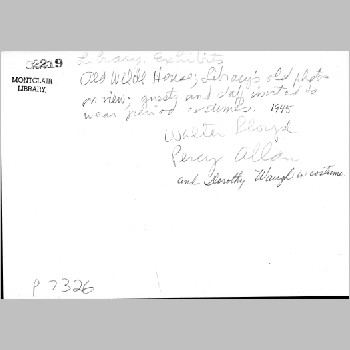 02219
MONTCLAIR
LIBRARY
Library. Exhibits
Old Wilde House; Library's old photos
on view; guests and staff invited to
wear period costumes. 1945
Walter Lloyd
Percy Allan
and Dorothy Waugh in costume.
P 7326